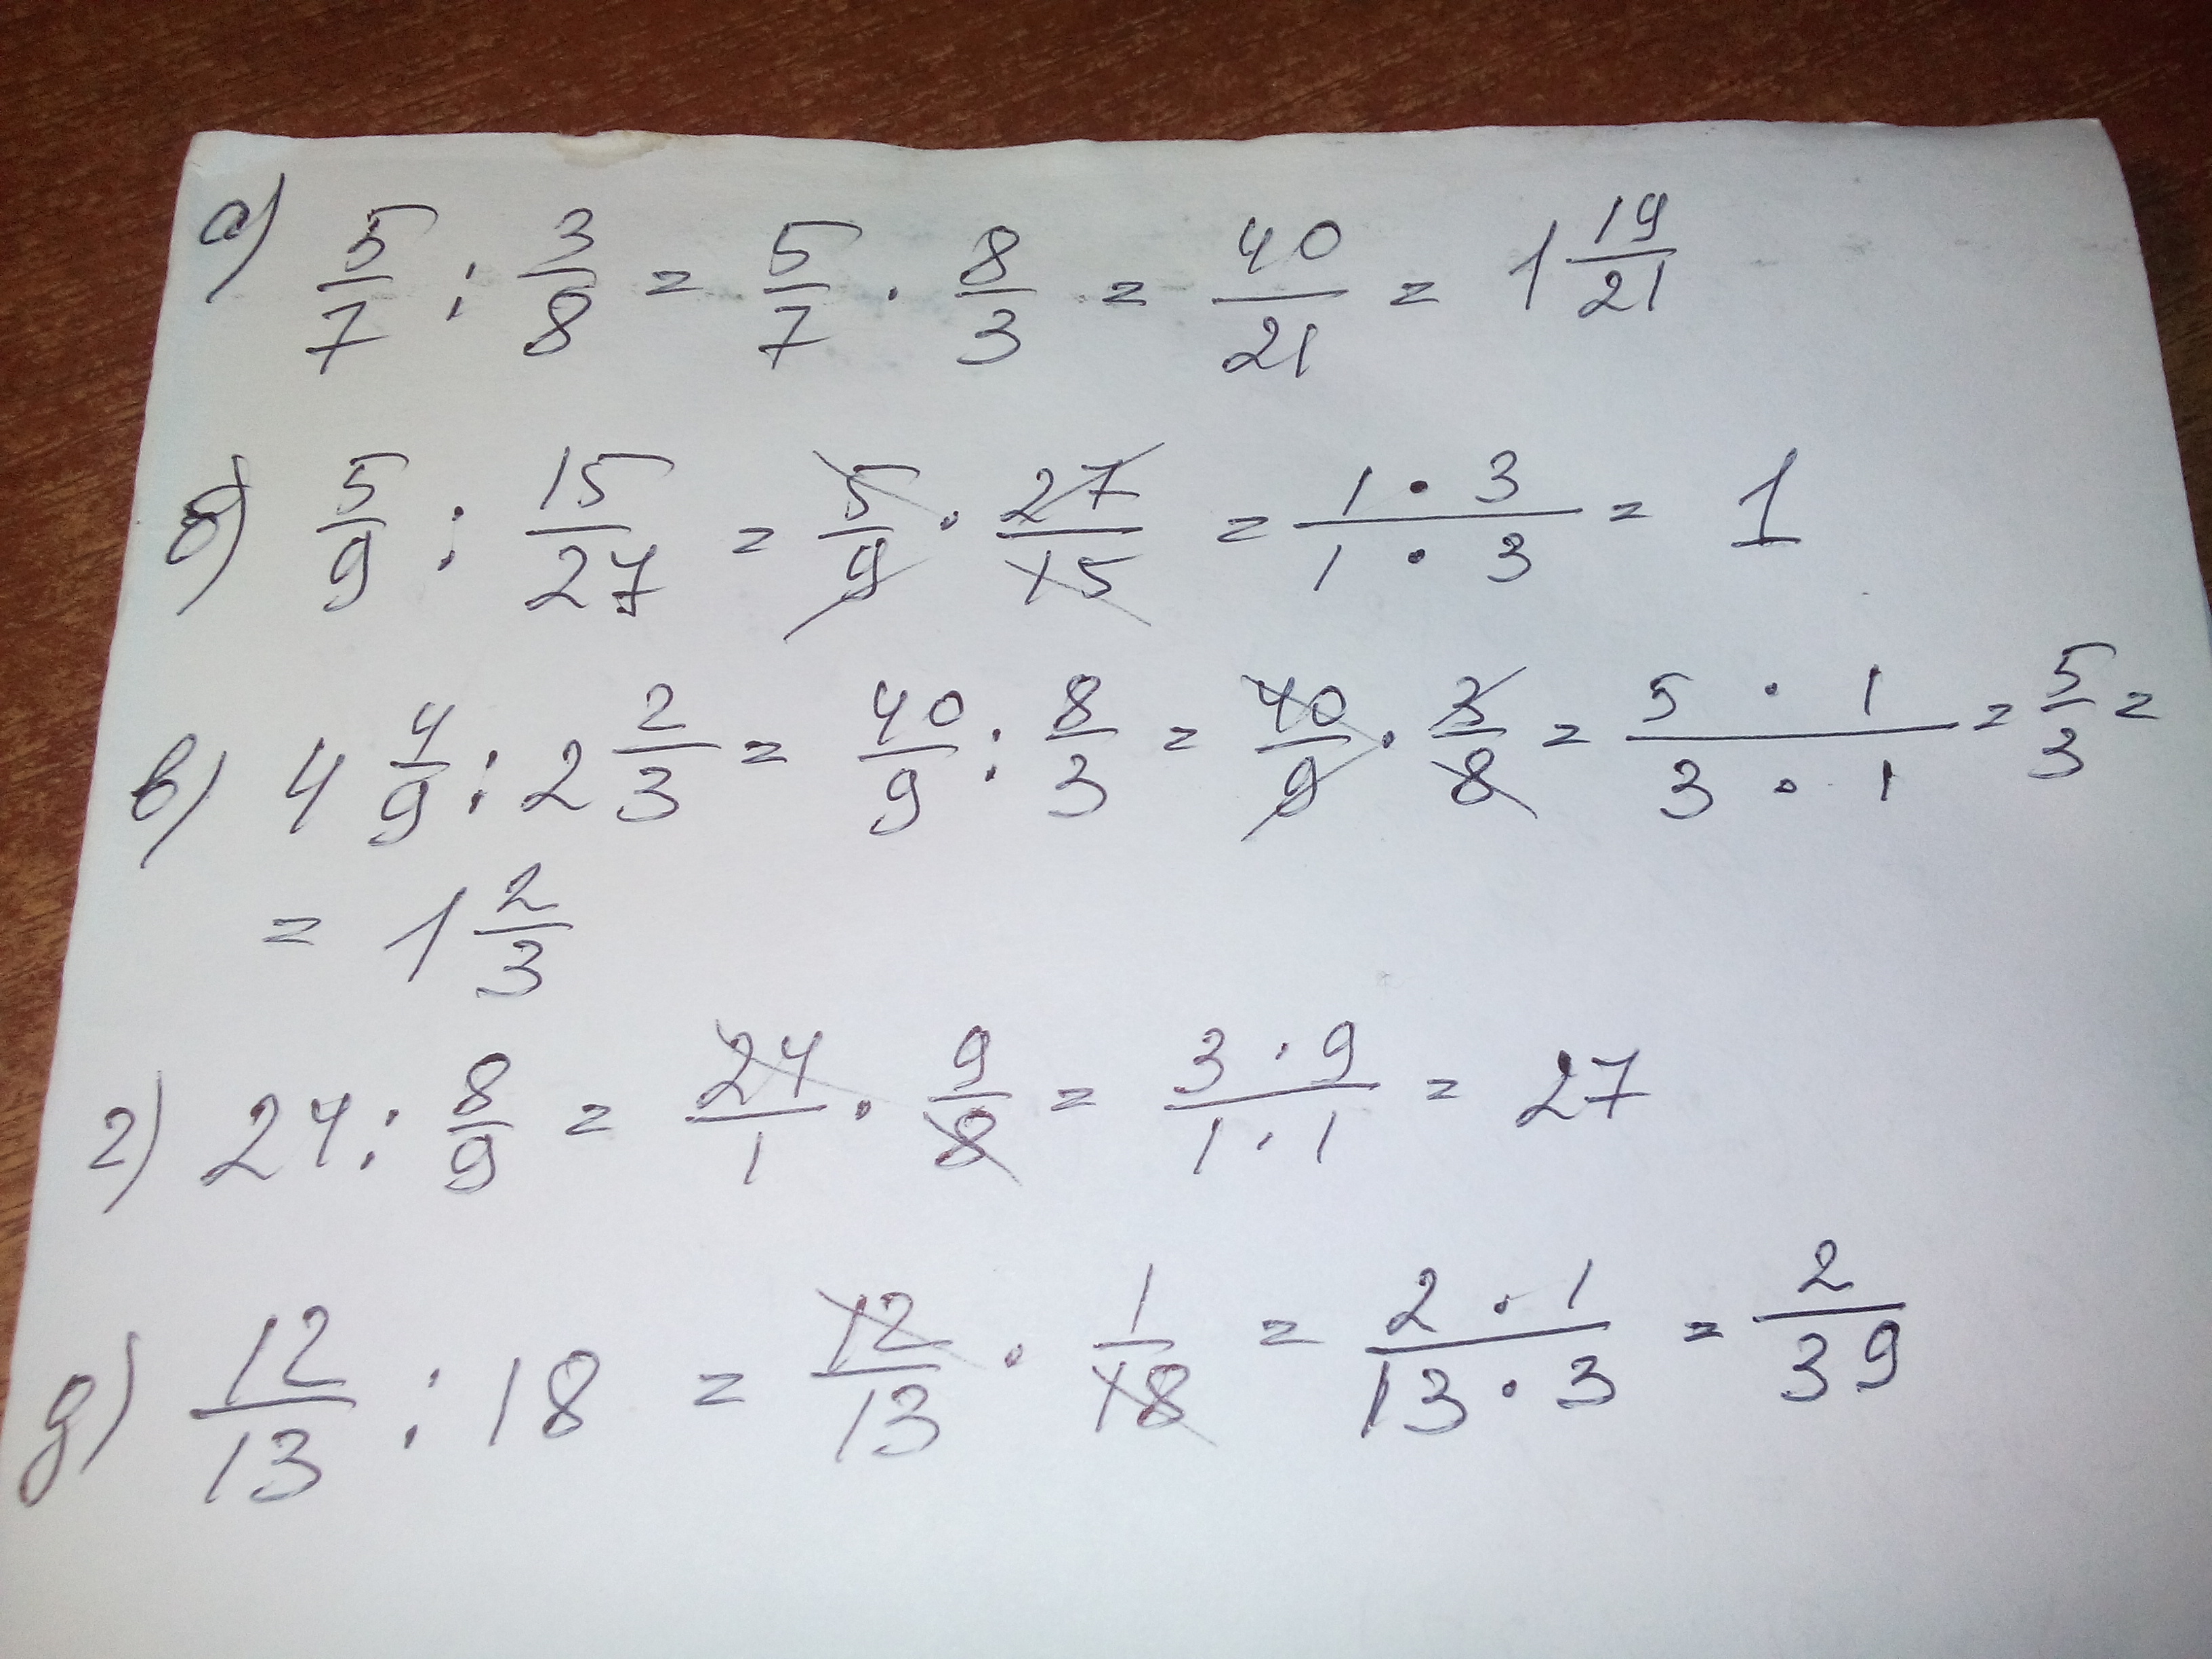 а) 5/7 : 3/8 = 5/7 · 8/3 = 40/21 = 1 19/21
б) 5/9 : 15/27 = 5/9 · 27/15 = 1 · 3/1 · 3 = 1
в) 4 4/9 : 2 2/3 = 40/9 : 8/3 = 40/9 · 3/8 = 5 · 1/3 · 1 = 5/3 =
= 1 2/3
г) 24 : 8/9 = 24/1 · 9/8 = 3 · 9/1 · 1 = 27
д) 12/13 : 18 = 12/13 · 1/18 = 2 · 1/13 · 3 = 2/39